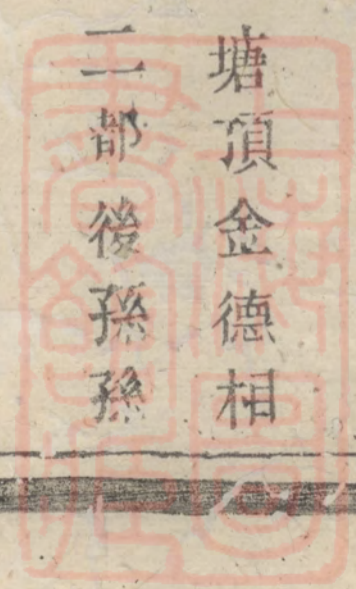 塘頂金德相
二都後孫孫